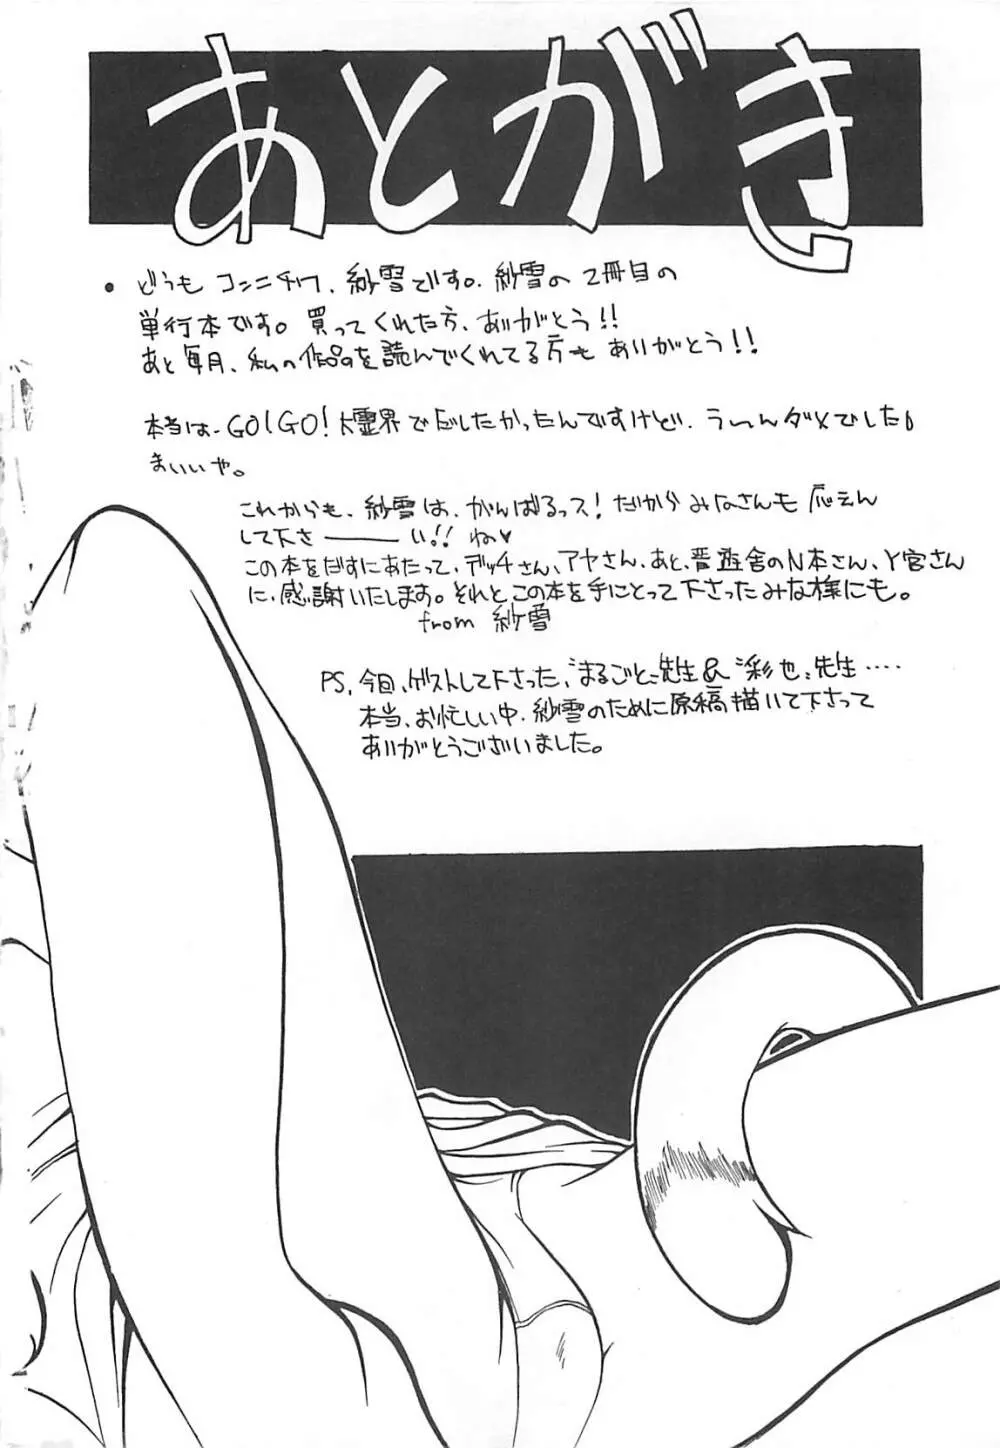 あとがき
• どうも コンニチワ、紗雪です。紗雪の 2冊目の
単行本です。買ってくれた方、ありがとう!!
あと毎月、私の作品を読んでくれてる方も ありがとう!!
本当は、GO!GO!大霊界でだしたかったんですけど、うーんダメでした。
まいいや。
これからも、紗雪は、がんばるっス! だから みなさんも 応えん
して下さ――――い!! ね♥
この本をだすにあたって、デッチさん、アヤさん、あと、晋遊舎のN本さん、Y宮さん
に、感謝いたします。それと この本を手にとって 下さったみな様にも。
from 紗雪
PS, 今回、ゲストして下さった、まるごと先生 & 彩也先生‥‥
本当、お忙しい中、紗雪のために原稿描いて下さって
ありがとうございました。